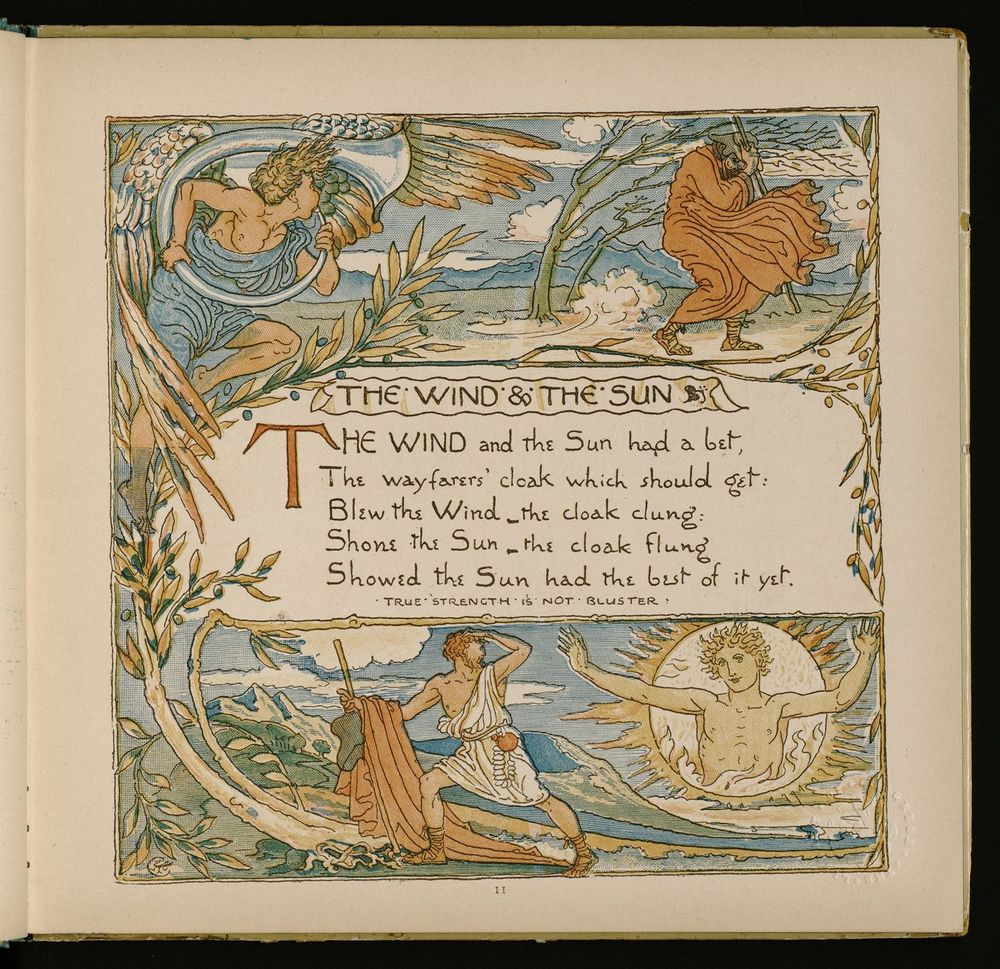 THE · WIND & THE · SUN
THE WIND and the Sun had a bet,
The wayfarers' cloak which should get:
Blew the Wind - the cloak clung:
Shone the Sun - the cloak flung
Showed the Sun had the best of it yet.
· TRUE · STRENGTH · IS · NOT · BLUSTER ·
11